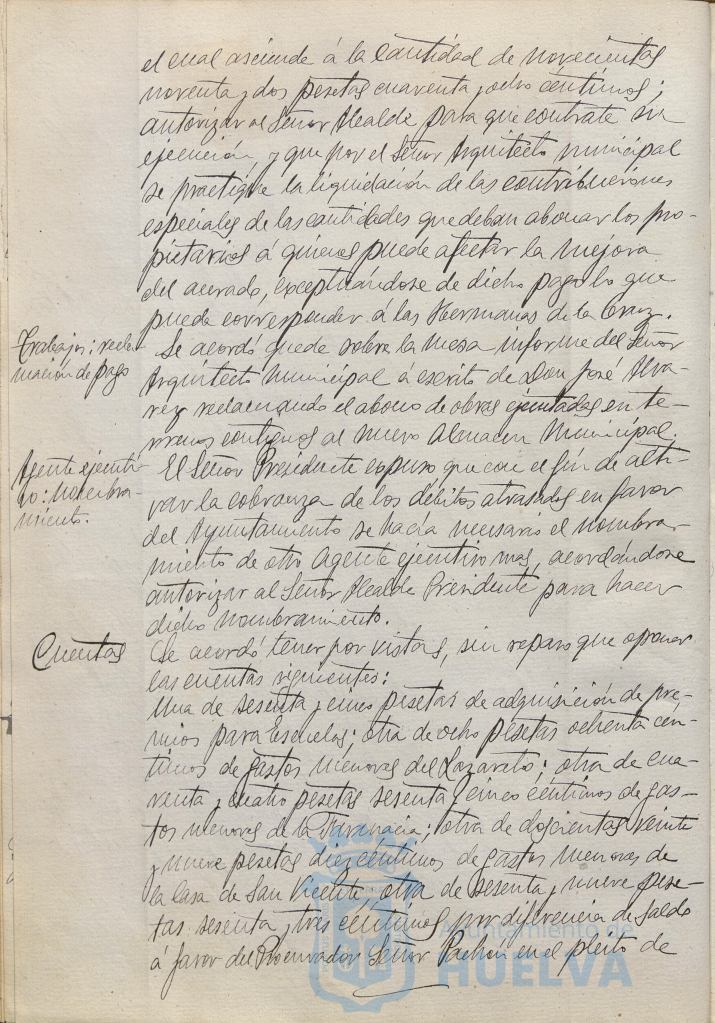 el cual asciende á la cantidad de novecientas
noventa y dos pesetas cuarenta y ocho céntimos;
autorizar al Señor Alcalde para que contrate su
ejecución, y que por el Señor Arquitecto municipal
se practique la liquidación de las contribuciones
especiales de las cantidades que deban abonar los pro-
pietarios á quienes puede afectar la mejora
del acerado, exceptuándose de dicho pago lo que
pueda corresponder á las Hermanas de la Cruz.
Trabajos: recla-
mación de pago
Se acordó quede sobre la mesa informe del Señor
Arquitecto municipal á escrito de Don José Alva-
rez reclamando el abono de obras ejecutadas en te-
rrenos contiguos al nuevo Almacen Municipal.
Agente ejecuti-
vo: nombra-
miento.
El Señor Presidente expuso que con el fin de acti-
var la cobranza de los débitos atrasados en favor
del Ayuntamiento se hacía necesario el nombra-
miento de otro Agente ejecutivo mas, acordándose
autorizar al Señor Alcalde Presidente para hacer
dicho nombramiento.
Cuentas
Se acordó tener por vistas, sin reparo que oponer
las cuentas siguientes:
Una de sesenta y cinco pesetas de adquisición de pre-
mios para Escuelas; otra de ocho pesetas ochenta cén-
timos de gastos menores del Lazareto; otra de cua-
renta y cuatro pesetas sesenta y cinco céntimos de gas-
tos menores de la Farmacia; otra de doscientas veinte
y nueve pesetas diez céntimos de gastos menores de
la Casa de San Vicente, otra de sesenta y nueve pese-
tas sesenta y tres céntimos, por diferencia de saldo
á favor del Procurador Señor Pachón en el pleito de
Ayuntamiento de
HUELVA